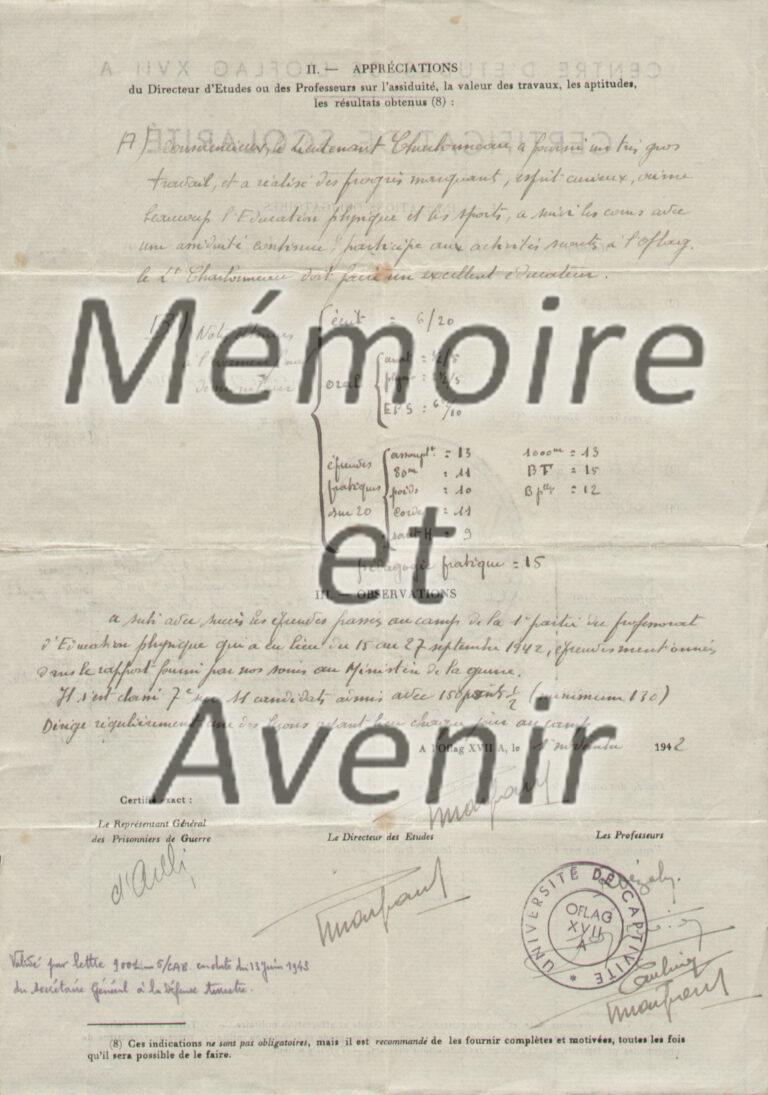 II. — APPRÉCIATIONS
du Directeur d'Etudes ou des Professeurs sur l'assiduité, la valeur des travaux, les aptitudes,
les résultats obtenus (8) :
A) consciencieux, le Lieutenant Charbonneau a fourni un très gros
travail, et a réalisé des progrès marquant, esprit curieux, anime
beaucoup l'Education physique et les sports, a suivi les cours avec
une assiduité continue, participe aux activités à l'oflag.
le Lt Charbonneau doit faire un excellent éducateur.
écrit = 6/20
Mémoire
oral
EPS :
épreuves pratiques sur 20
assoupt = 13 1000m = 13
80m = 11 BT = 15
poids = 10 B = 12
corde = 11
saut H = 9
et
pédagogie pratique = 15
III. — OBSERVATIONS
a subi avec succès les épreuves passées au camp de la 1e partie du professorat
d'Education physique qui a eu lieu du 15 au 27 septembre 1942, épreuves mentionnées
dans le rapport fourni par nos soins au Ministère de la guerre.
Il s'est classé 7e sur 11 candidats admis avec 150 points 1/2 (minimum 130)
Dirige régulièrement une des leçons ayant lieu chaque jour au camp
Avenir
A l'Oflag XVII A, le 1 novembre 1942
Certifié exact :
Le Représentant Général
des Prisonniers de Guerre
Le Directeur des Etudes
Les Professeurs
UNIVERSITÉ DE CAPTIVITÉ
OFLAG
XVII
A
Validé par lettre 5/CAB. en date du 13 juin 1943
du Secrétaire Général à la défense terrestre.
(8) Ces indications ne sont pas obligatoires, mais il est recommandé de les fournir complètes et motivées, toutes les fois
qu'il sera possible de le faire.